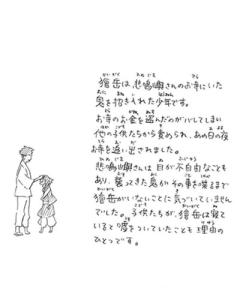 獪岳は、悲鳴嶼さんのお寺にいた
鬼を招き入れた少年です。
お寺のお金を盗んだのがバレてしまい
他の子供たちから責められ、あの日の夜
お寺を追い出されました。
悲鳴嶼さんは目が不自由なことも
あり、襲ってきた鬼がその事を喋るまで
獪岳がいないことに気づいていません
でした。子供たちが、獪岳は寝て
いると嘘をついていたことも理由の
ひとつです。